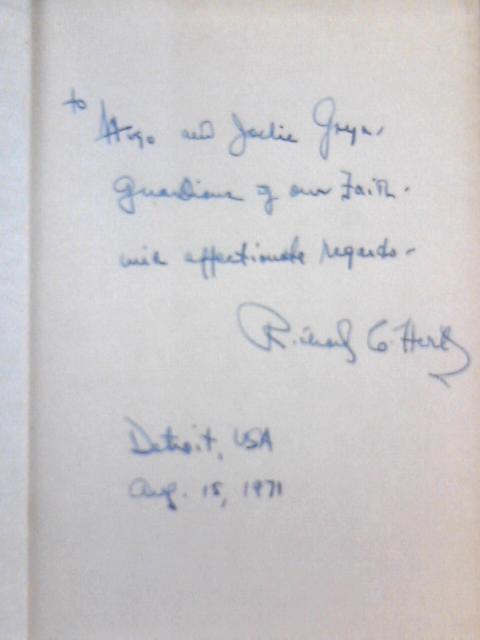 to Hugo and Jackie Gryn,
Guardians of our Faith -
with affectionate regards -
Richard C. Hertz
Detroit, USA
Aug. 15, 1971